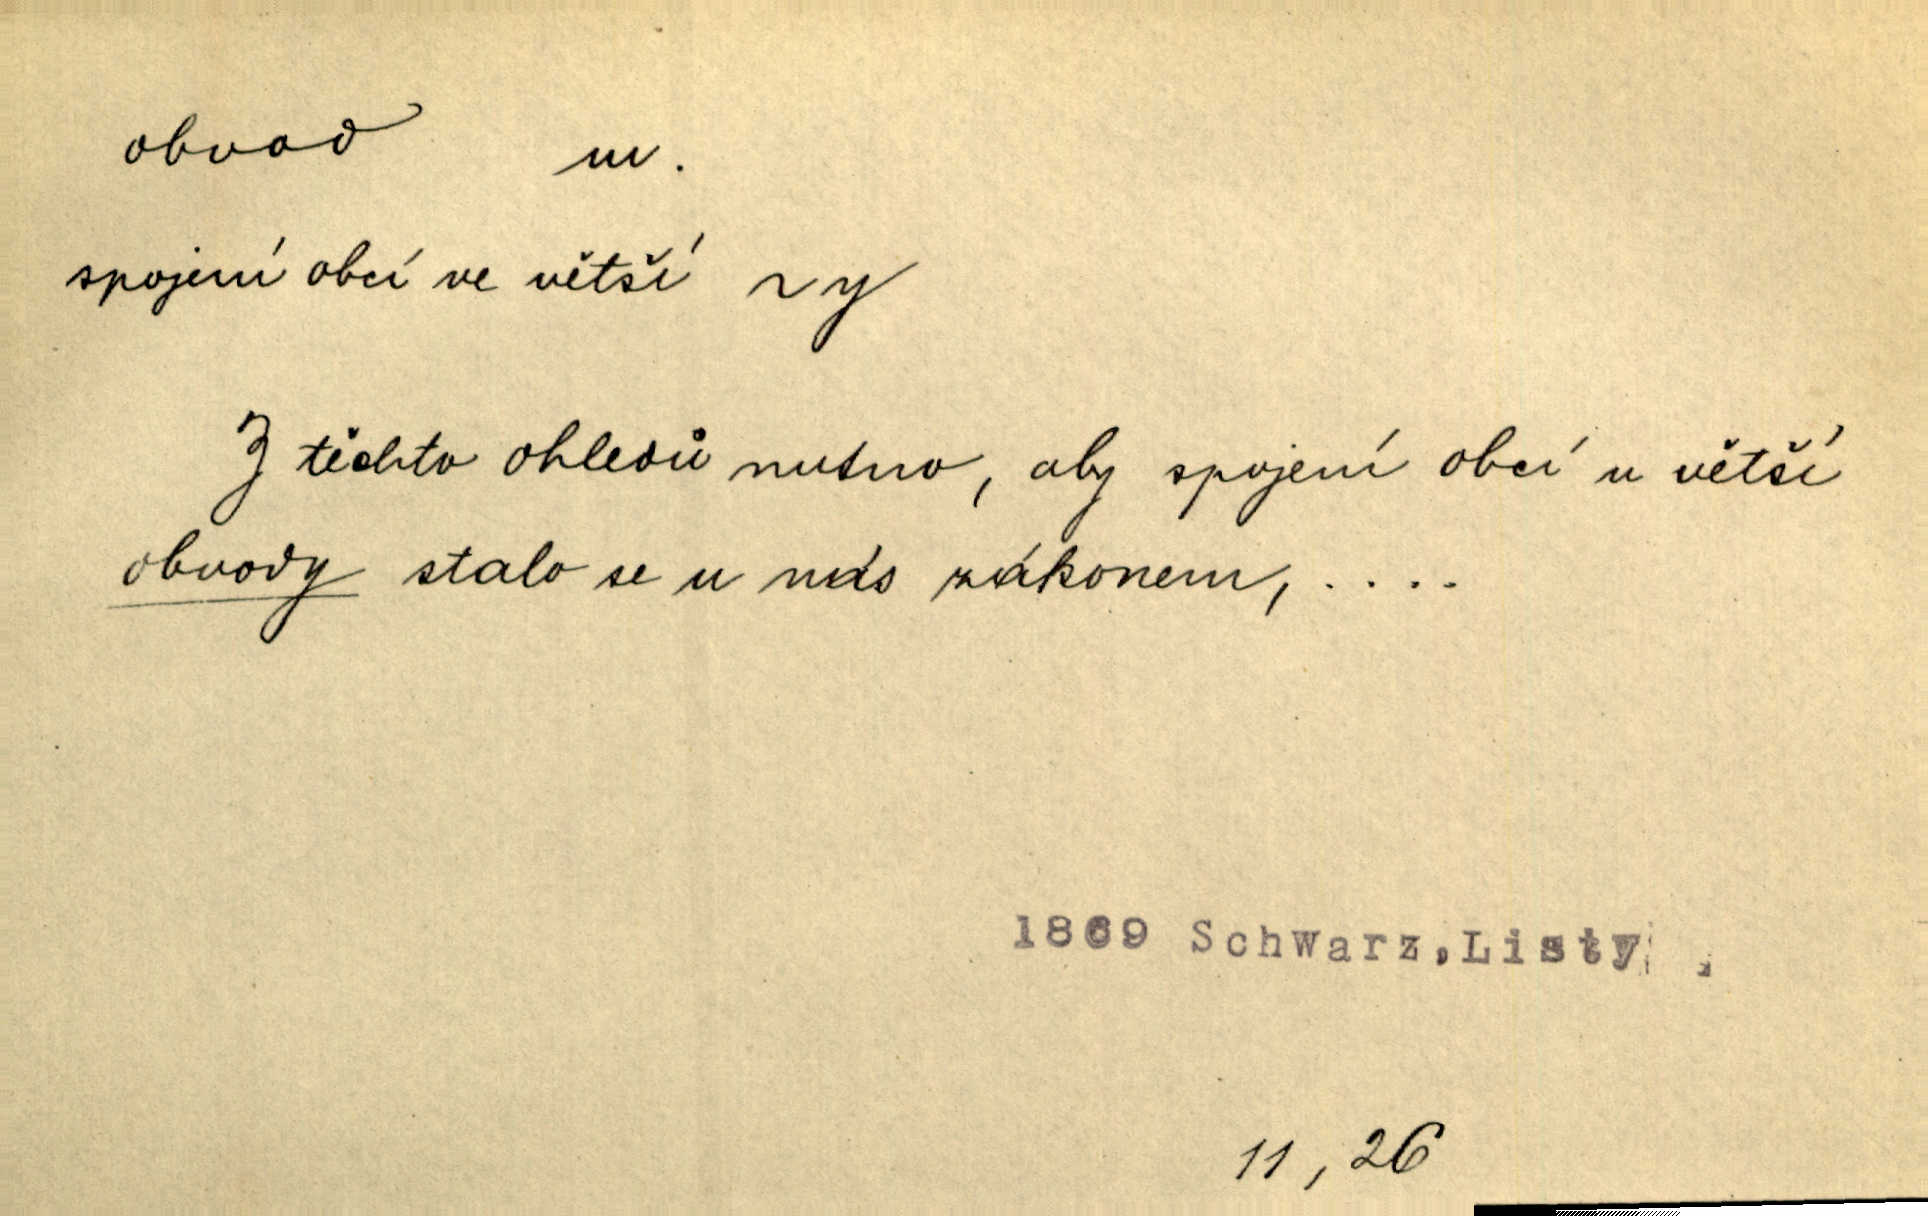 obvod m.
spojení obcí ve větší ~y
Z těchto ohledů nutno, aby spojení obcí v větší
obvody stalo se u nás zákonem, ....
1869 Schwarz, Listy ,
11, 26